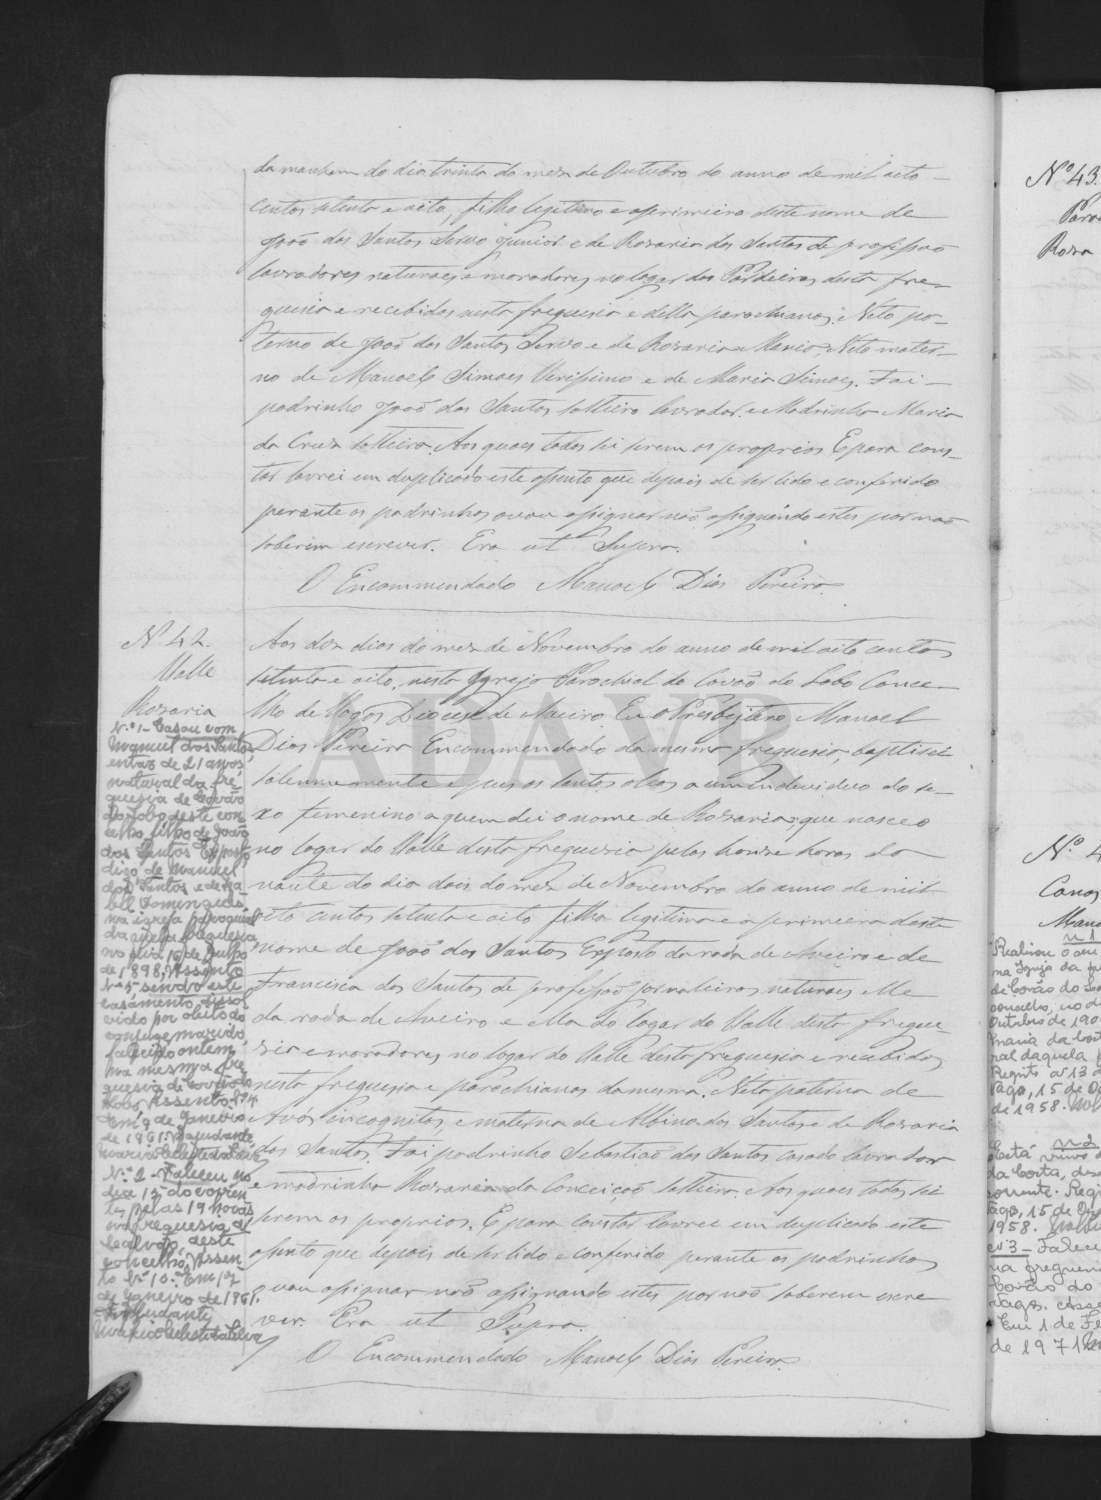 da manham do dia trinta do mez de Outubro do anno de mil oito
centos setenta e oito, filho legitimo e o primeiro deste nome de
João dos Santos Servo Junior e de Rosaria dos Santos de profissão
lavradores naturaes e moradores no logar dos Pardeiros desta fre-
guesia e recebidos nesta freguesia e della parochianos. Neto pa-
terno de João dos Santos Servo e de Rosaria Maria, Neto mater-
no de Manoel Simoes Verissimo e de Maria Simoes. Foi
padrinho João dos Santos solteiro lavrador e Madrinha Maria
da Cruz solteira. Aos quaes todos sei serem os proprios E para cons-
tar lavrei em duplicado este assento que depois de ser lido e conferido
perante os padrinhos o vou assignar não assignando estes por não
saberem escrever. Era ut Supra.
O Encommendado Manoel Dias Pereira
Nº 42.
Valle
Rosaria
Aos dez dias do mez de Novembro do anno de mil oito centos
setenta e oito, nesta Igreja Parochial do Covão do Lobo Conce-
lho de Vagos Diocese de Aveiro Eu o Presbytero Manoel
Dias Pereira Encommendado da mesma freguesia, baptisei
solennemente e pus os santos oleos a um individuo do se-
xo femenino a quem dei o nome de Rosaria, que nasceo
no logar do Valle desta freguesia pelas honze horas da
noute do dia dois do mez de Novembro do anno de mil
oito centos setenta e oito filha legitima e a primeira deste
nome de João dos Santos Exposto da roda de Aveiro e de
Francisca dos Santos de profissão jornaleiros naturaes elle
da roda de Aveiro e ella do logar do Valle desta fregue
sia e moradores no logar do Valle desta freguesia e recebidos
nesta freguesia e parochianos da mesma. Neta paterna de
Avós incognitos, e materna de Albino dos Santos e de Rosaria
dos Santos. Foi padrinho Sebastião dos Santos casado lavrador
e madrinha Rosaria da Conceição solteira. Aos quaes todos sei
serem os proprios. E para constar lavrei em duplicado este
assento que depois de ser lido e conferido perante os padrinhos
o vou assignar não assignando estes por não saberem escre
ver. Era ut Supra.
O Encommendado Manoel Dias Pereira
N.º 1 - Casou com
Manuel dos Santos,
então de 21 anos,
natural da fre
guesia de Covão
do Lobo deste con
celho, filho de João
dos Santos Exposto
digo de Manuel
dos Santos e de Isa
bel Domingues
na igreja paroquial
daquela freguesia
no dia 16 de Julho
de 1898, Assento
Nº 5 sendo este
casamento dissol
vido por óbito do
conjuge marido,
falecido ontem
na mesma fre
guesia de Covão do
Lobo, Assento Nº 4
Em 9 de Janeiro
de 1961. O Ajudante,
N.º 2 - Faleceu no
dia 12 do corren
te, pelas 19 horas
na freguesia de
Calvão, deste
concelho, Assen
to N.º 10. Em 17
de Janeiro de 1961.
O Ajudante,
ADAVR
Nº 43.
Rosa
Nº 4
Mano
nº 1
Realizou
na Igreja da
de Covão do
concelho, no
Outubro de 190
Maria da Cost
ral daquela
Registo nº 13
Vago, 15 de Ou
de 1958.
nº 2
Está viuvo
da Costa,
corrente. Regi
ago, 15 de Ou
1958.
nº 3 - Falece
na freguesi
Covão do
Vagos. Asse
Em 1 de Fe
de 1971